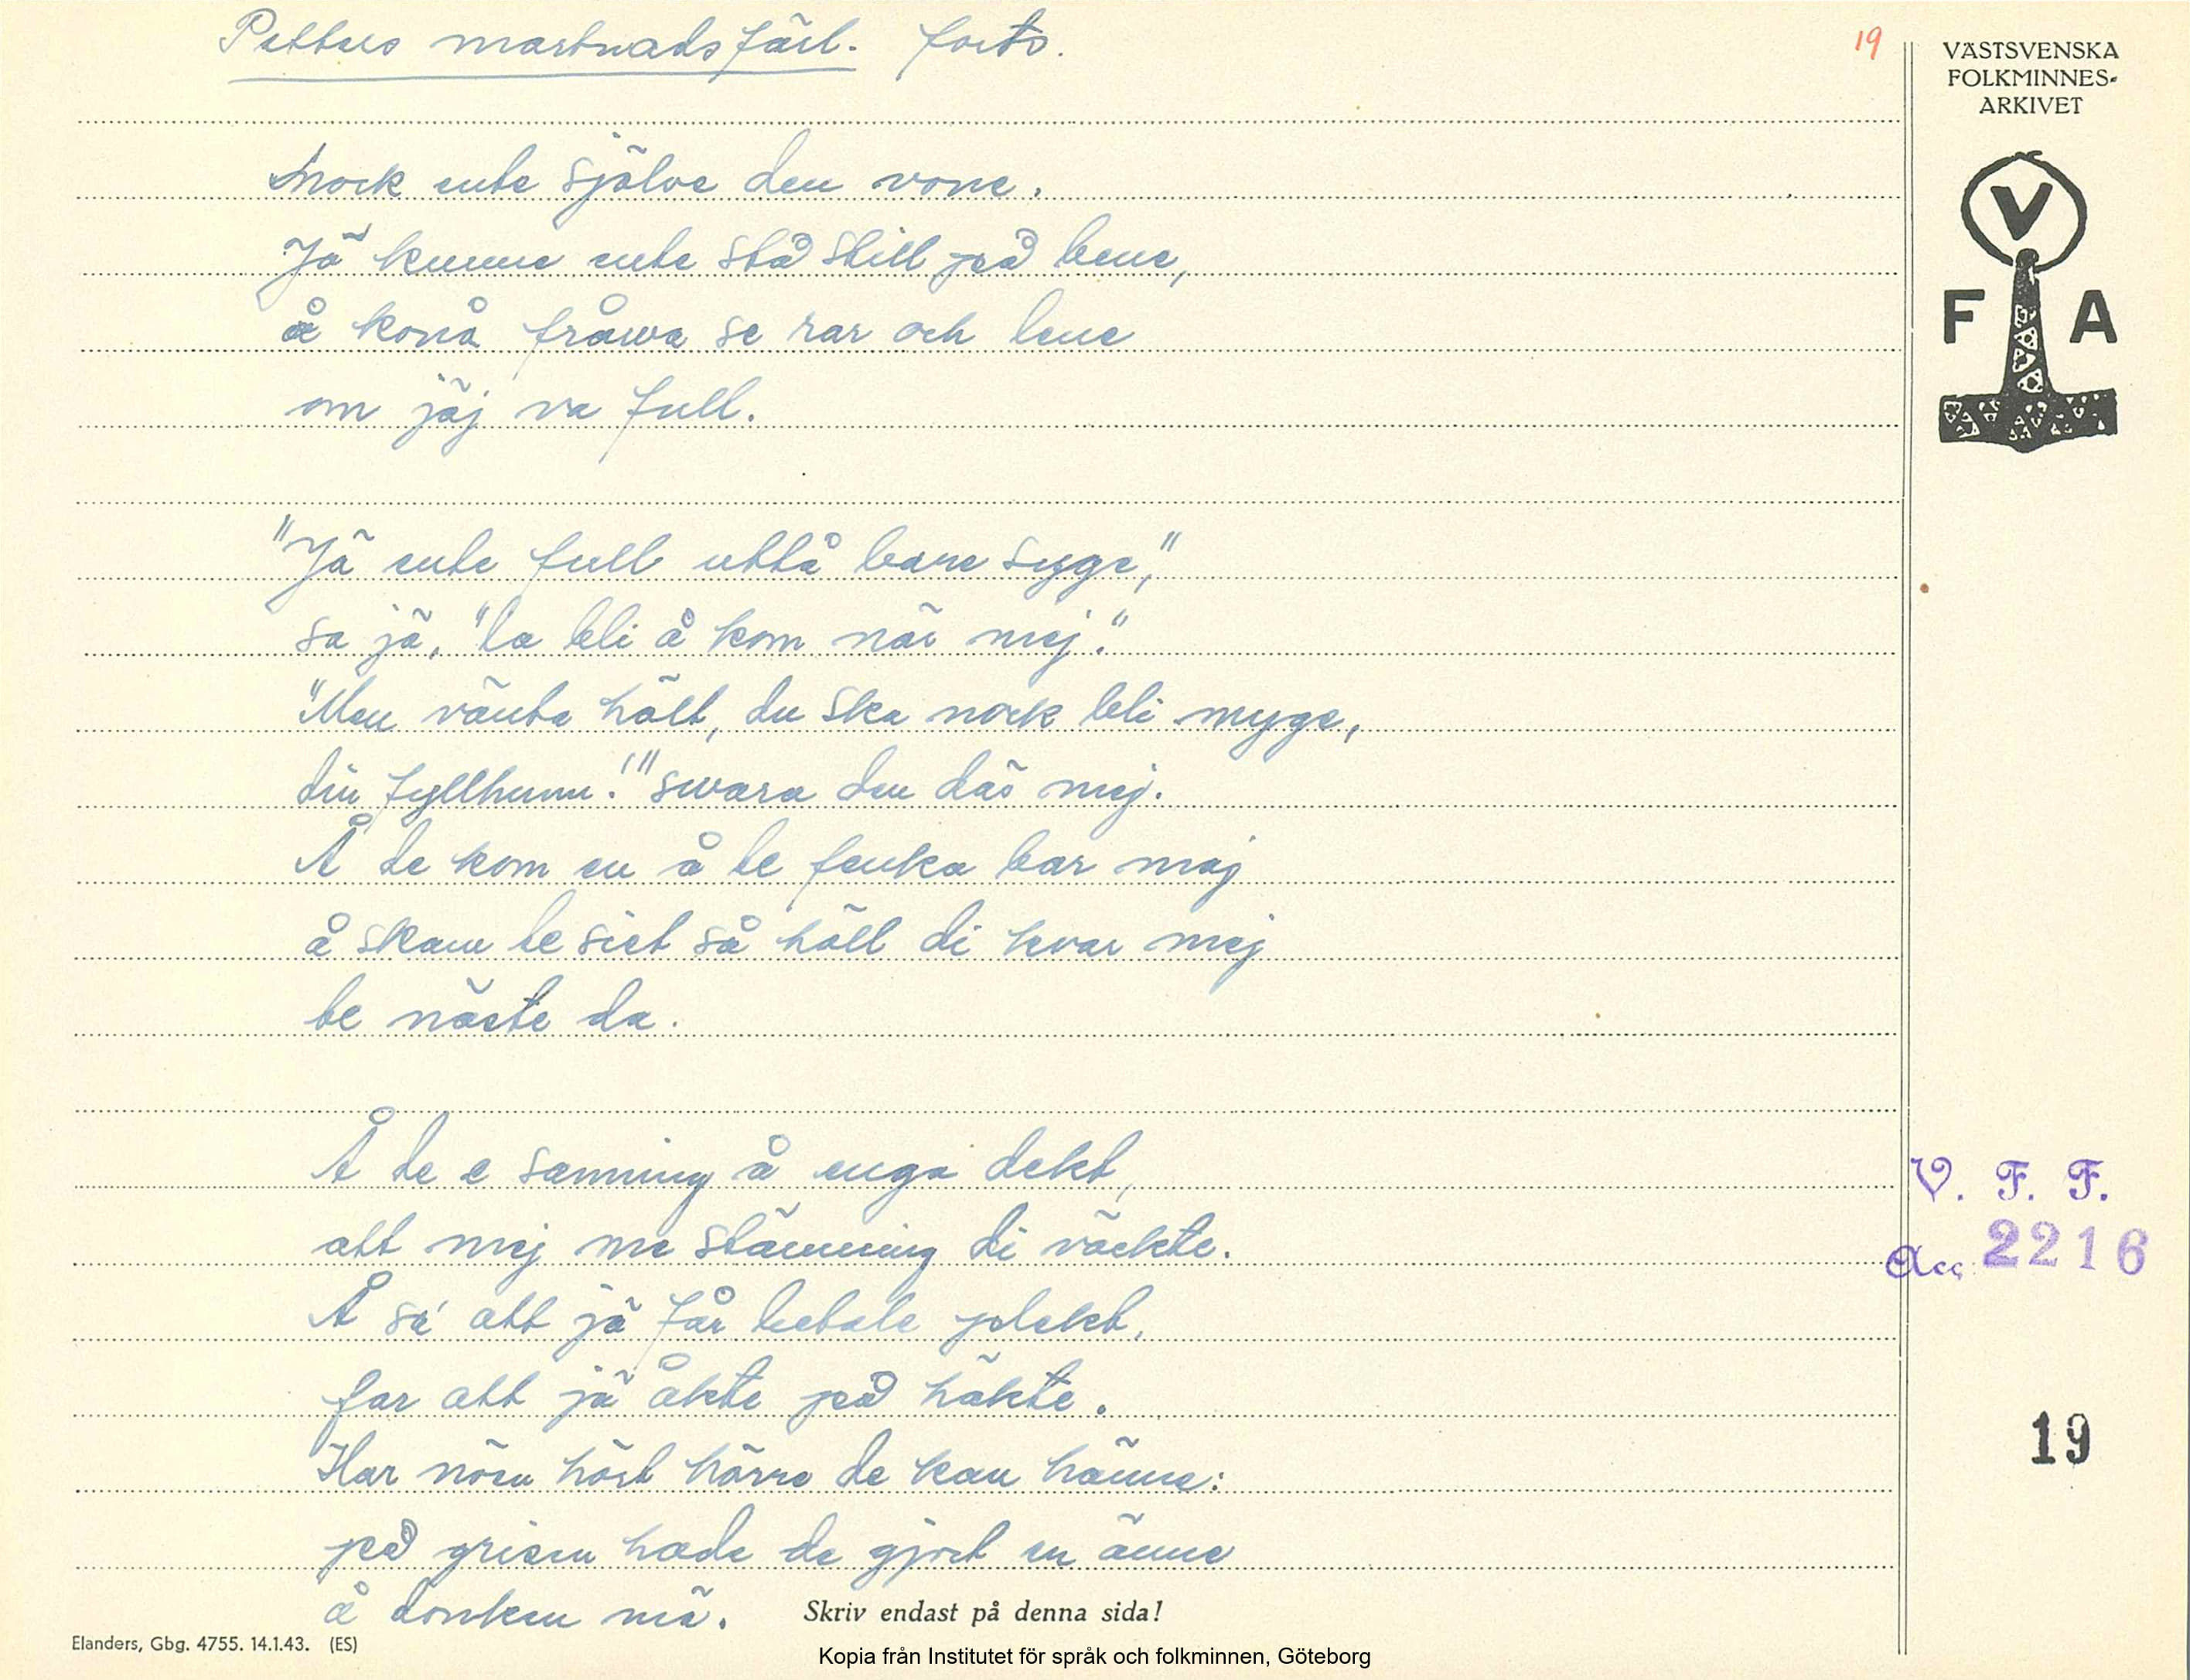 Petters martnadsfärl. forts.
19
VÄSTSVENSKA
FOLKMINNES-
ARKIVET
V
F A
snock ente sjölve den vone.
Jä kunne ente stå still på bene,
å konå fråwa se rar och lene
om jäj va full.
"Jä ente full uttå bare syge,"
sa jä, "la bli å kom när mej."
"Men vänta hält, du ska nock bli myge,
din fyllhunn!" swara den däs mej.
Å de kom en å te fenka bar maj
å skam te siet så höll di kvar mej
te näste da.
Å de e sanning å enga dekt,
att mej me stämning di väckte.
Å sá att jä får betale plekt,
far att jä åkte på häkte.
Har nösn hört hörre de kan hänne:
på grisen hade de gjort en änne
å donken mä.
Skriv endast på denna sida!
V. F. F.
Acc. 2216
19
Elanders, Gbg. 4755. 14.1.43. (ES)
Kopia från Institutet för språk och folkminnen, Göteborg